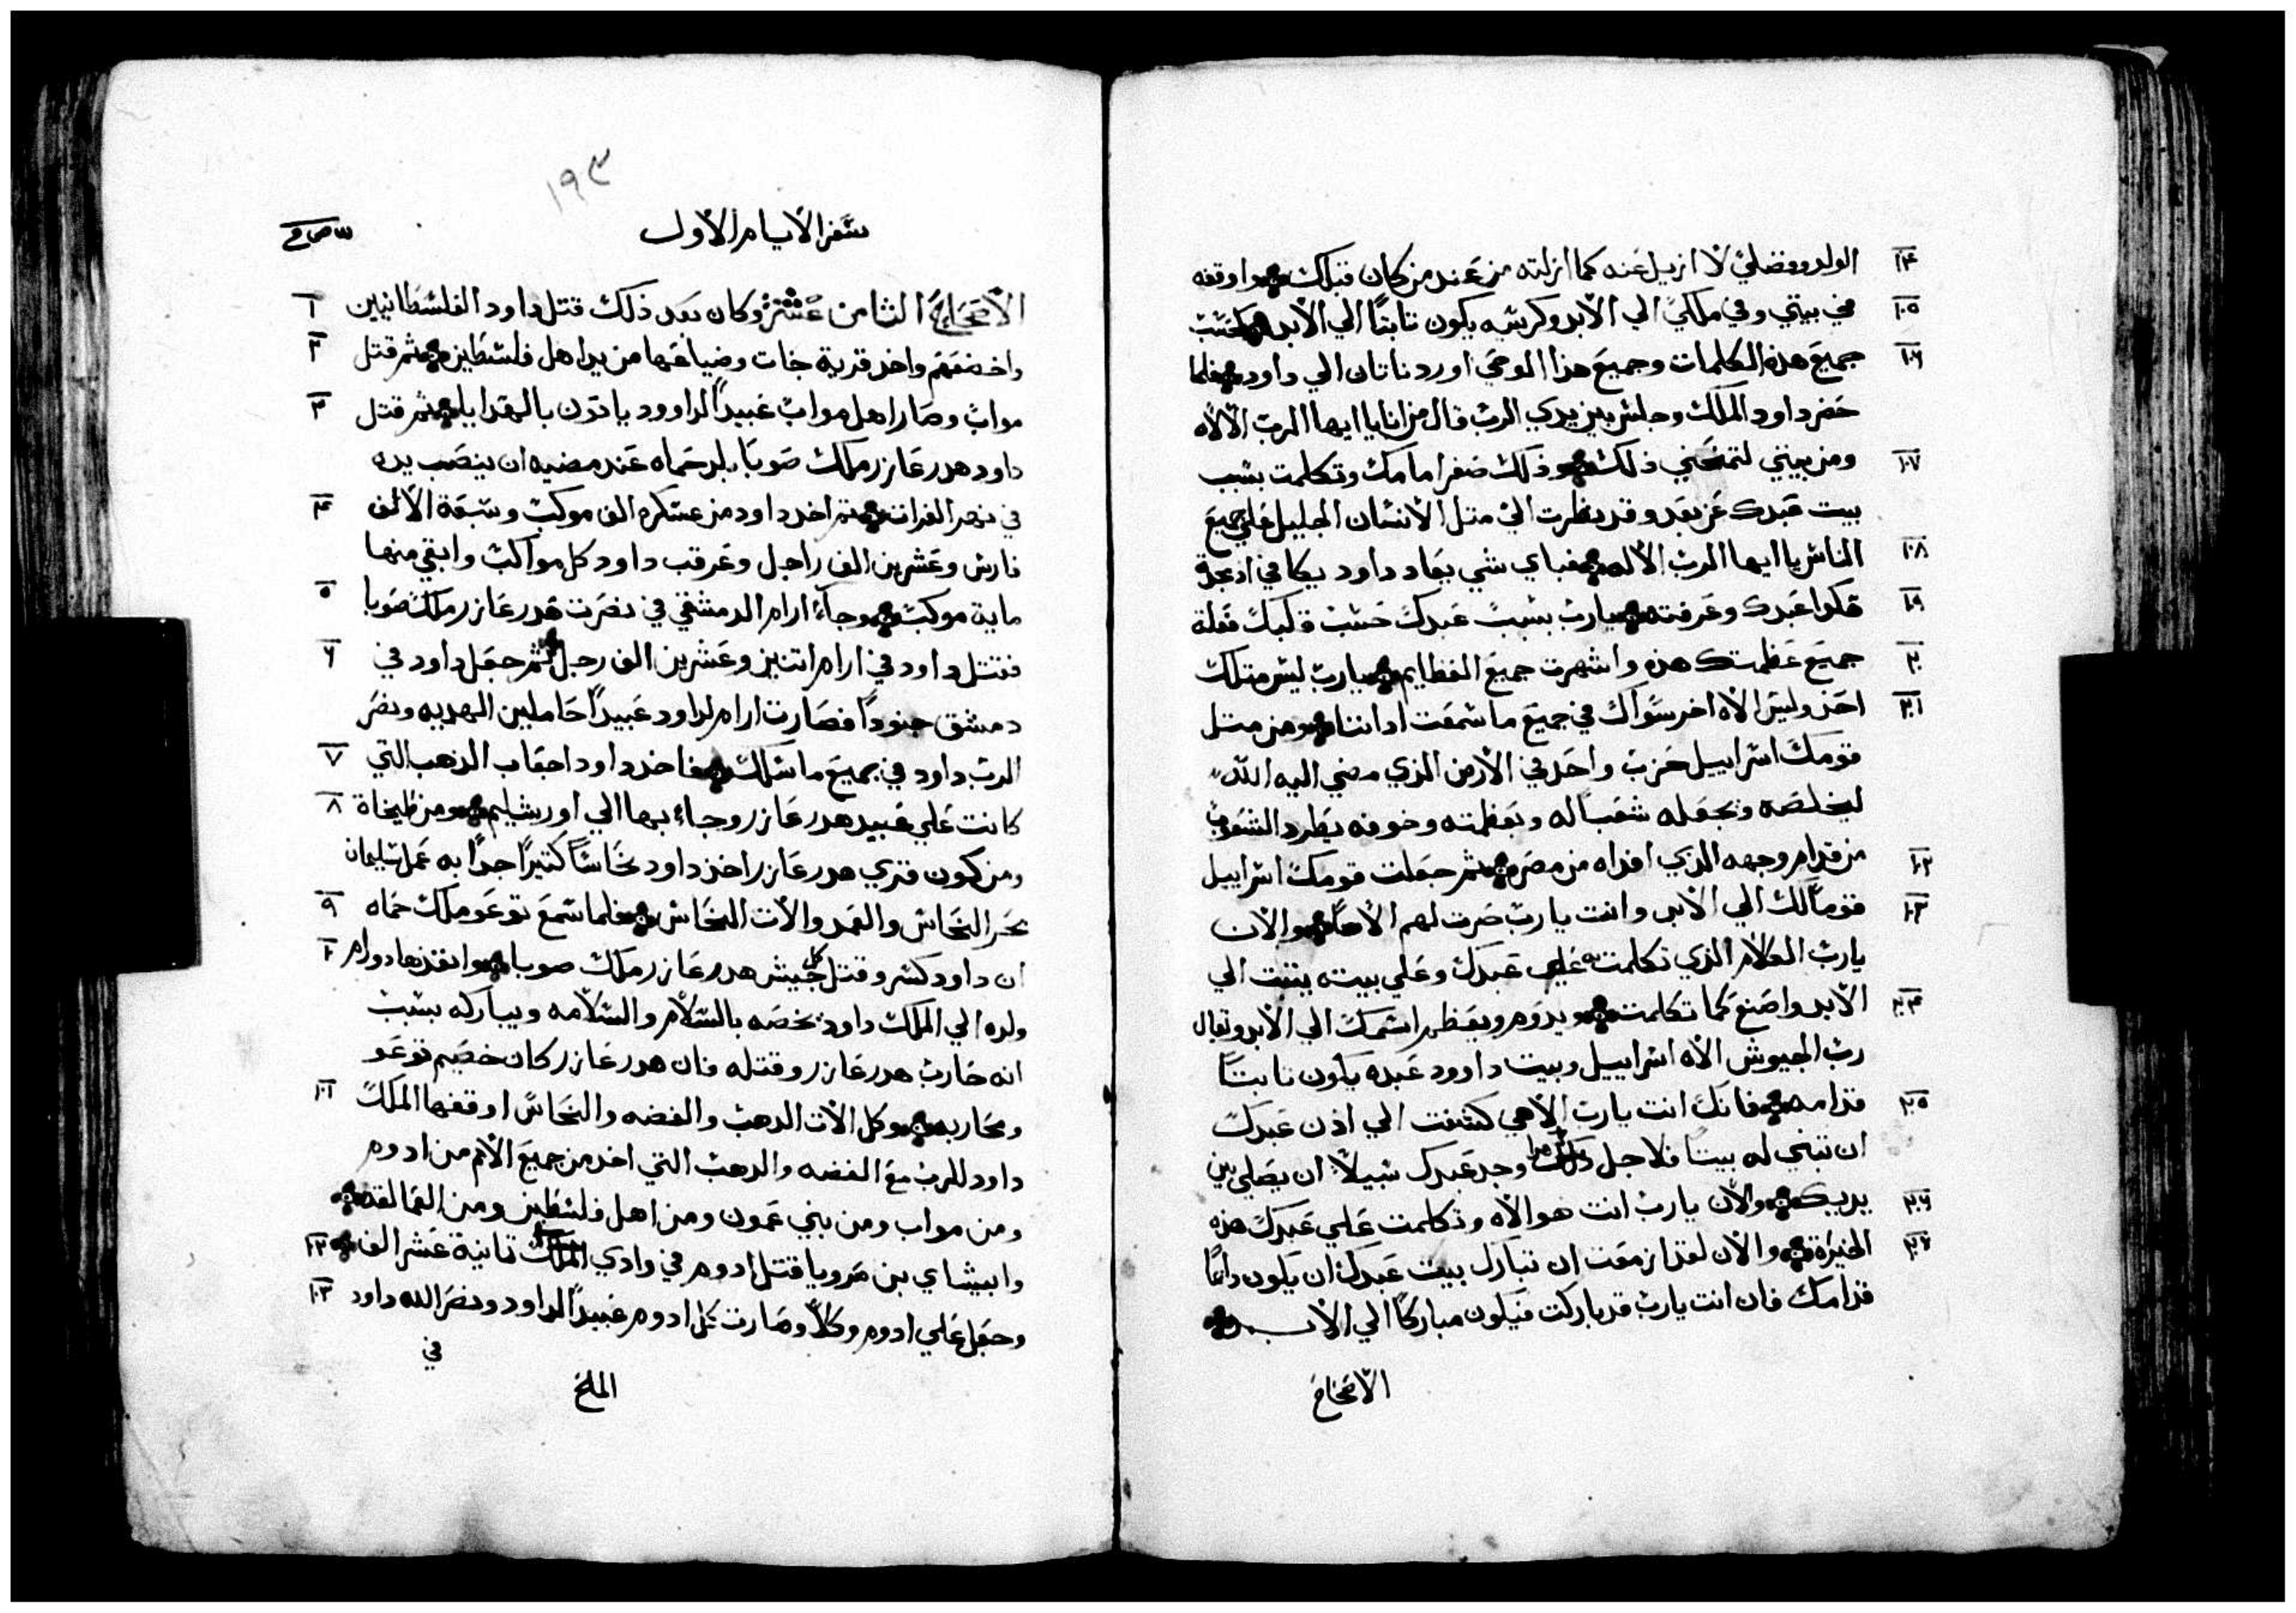 الولد وفضلي لا ازيل عنه كما ازلته من عند من كان قبلك واوقفه ١٤
في بيتي وفي ملكي الي الأبد وكرسيه يكون تابتاً الي الأبد كحسب ١٥
جميع هذه الكلمات وجميع هذا الوحي اورد ناتان الي داود فلما ١٦
حضر داود الملك وجلس بين يدي الرب قال من انا يا ايها الرب الألاه
ومن بيتي لتمنحني ذلك وذلك صغر امامك وتكلمت بسبب ١٧
بيت عبدك عن بعد وقد نظرت الي متل الأنسان الجليل علي جميع
الناس يا ايها الرب الأله فباي شي يعاد داود يكافي اذ مجدة ١٨
هكدا عبدك وعرفته يارب بسبب عبدك حسب قلبك فعلة ١٩
جميع عظمتك هذه واشهرت جميع العظايم يارب ليس متلك ٢٠
احد وليس الاه اخر سواك في جميع ما سمعت اداننا ومن متل ٢١
قومك اسراييل حزب واحد في الأرض الذي مضي اليه الله
ليخلصه ويجعله شعباً له وبعظمته وخوفه يطرد الشعوب
من قدام وجهه الذي افداه من مصر ثم جعلت قومك اسراييل ٢٢
قوماً لك الي الأبد وانت يارب صرت لهم الأهاً والأن ٢٣
يارب الكلام الذي تكلمت به علي عبدك وعلي بيته يتبت الي
الأبد واصنع كما تكلمت ويدوم ويعظم اسمك الي الأبد وتقال ٢٤
رب الجيوش الأه اسراييل وبيت داوود عبده يكون تابتاً
قدامه فانك انت يارب الأهي كشفت الي اذن عبدك ٢٥
ان تبني له بيتاً فلاجل هذا وجد عبدك سبيلاً ان يصلي بين
يديك والأن يارب انت هو الأه وتكلمت علي عبدك هذه ٢٦
الخيرة والأن لقد ازمعت ان تبارك بيت عبدك ان يكون دايماً ٢٧
قدامك فان انت يارب قد باركت فيكون مباركاً الي الأبـــد
الأصحاح
١٩٣
سفر الأيام الأول
الأصحاح الثامن عشر وكان بعد ذلك قتل داود الفلسطانيين ١
واخضعهم واخد قرية جات وضياعها من يد اهل فلسطين ثم قتل ٢
مواب وصار اهل مواب عبيداً لداوود ياتون بالهدايا ثم قتل ٣
داود هدرعازر ملك صوبا بلد حماه عند مضيه ان ينصب يده
في نهر الفرات ثم اخد داود من عسكره الف موكب وسبعة الألف ٤
فارس وعشرين الف راجل وعرقب داود كل مواكب وابقي منها
ماية موكب وجاء ارام الدمشقي في نصرت هدرعازر ملك صوبا ٥
فقتل داود في ارام اتنين وعشرين الف رجل ثم جعل داود في ٦
دمشق جنوداً فصارت ارام لداود عبيداً حاملين الهديه ونصر
الرب داود في جميع ما سلك فاخد داود احقاب الذهب التي ٧
كانت علي عبيد هدرعازر وجاء بها الي اورشليم ومن طبخاة ٨
ومن كون قري هدرعازر اخذ داود نحاساً كتيراً جداً به عمل سليمان
بحر النحاس والعمد والأت النحاس فلما سمع توعو ملك حماه ٩
ان داود كسر وقتل كل جيش هدرعازر ملك صوبا وانفذ هادورام ١٠
ولده الي الملك داود يخصه بالسلام والسلامه ويباركه بسبب
انه حارب هدرعازر وقتله فان هدرعازر كان خصيم توعو
ومحاربه وكل الأت الدهب والفضه والنحاس اوقفها الملك ١١
داود للرب مع الفضه والدهب التي اخد من جميع الأمم من ادوم
ومن مواب ومن بني عمون ومن اهل فلسطين ومن العمالقه
وابيشاي بن صرويا قتل ادوم في وادي تمانية عشر الف ١٢
وجعل علي ادوم وكلاً وصارت كل ادوم عبيداً لداود ونصر الله داود ١٣
في
الملح